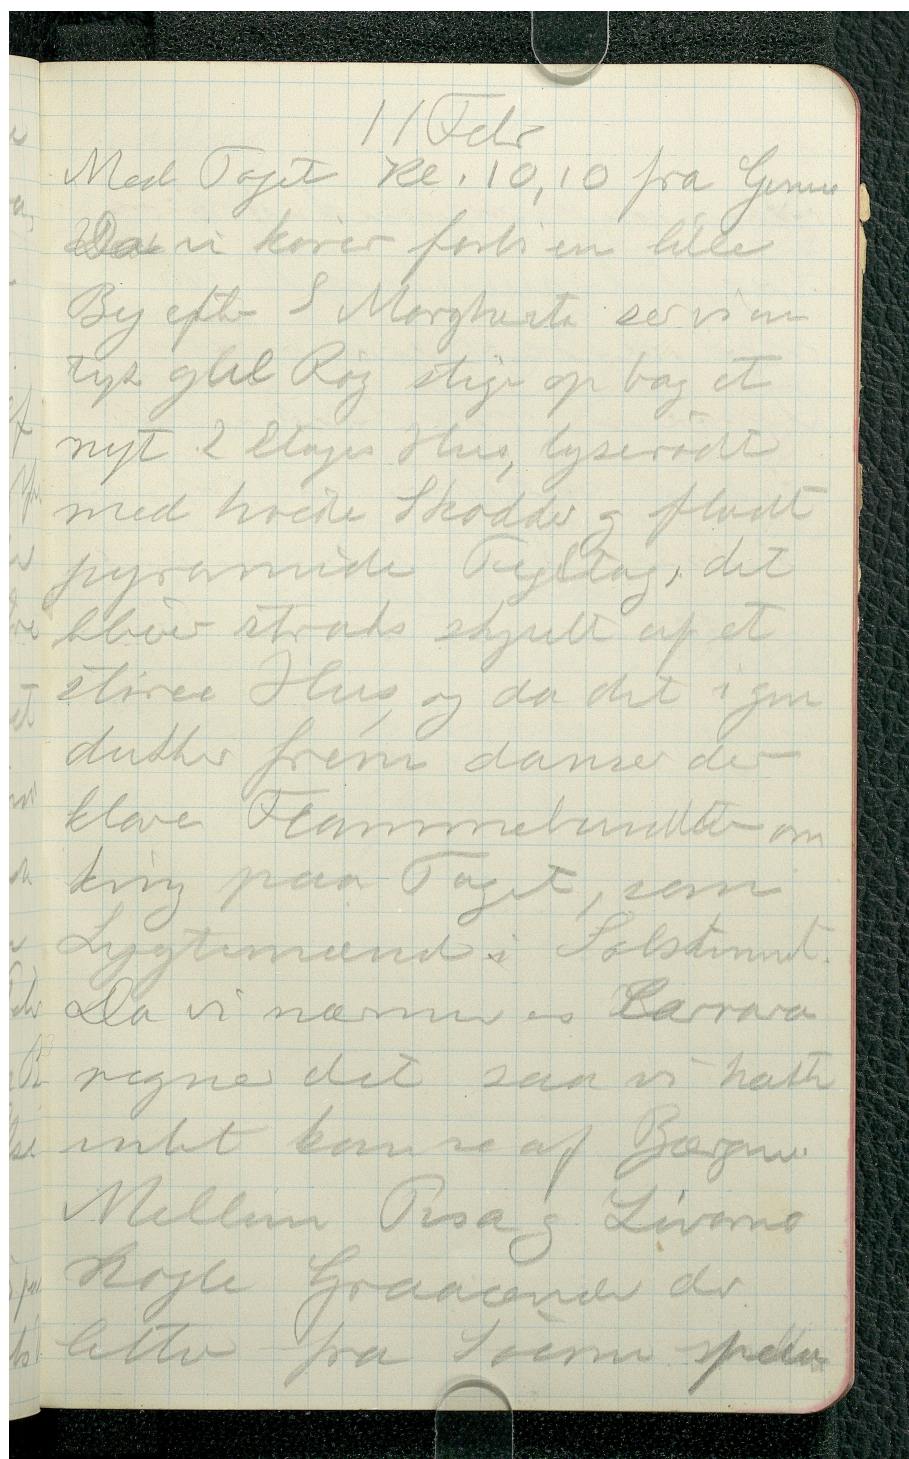 11 Febr
Med Toget Kl. 10,10 fra Genua
Da vi kører forbi en lille
By efter S Margherita ser vi en
tyk gul Røg stige op bag et
nyt 2 Etages Hus, lyserødt
med hvide Skodder og fladt
pyramide Tegltag, det
bliver straks skjult af et
større Hus, og da det igen
dukker frem danser der
klare Flammebundter om
kring paa Taget, som
Lygtemænd i Solskinnet.
Da vi nærmer os Carrara
regner det saa vi
intet kan se af Bjærgene.
Mellem Pisa og Livorno
Nogle Graaænder der
letter fra Søerne